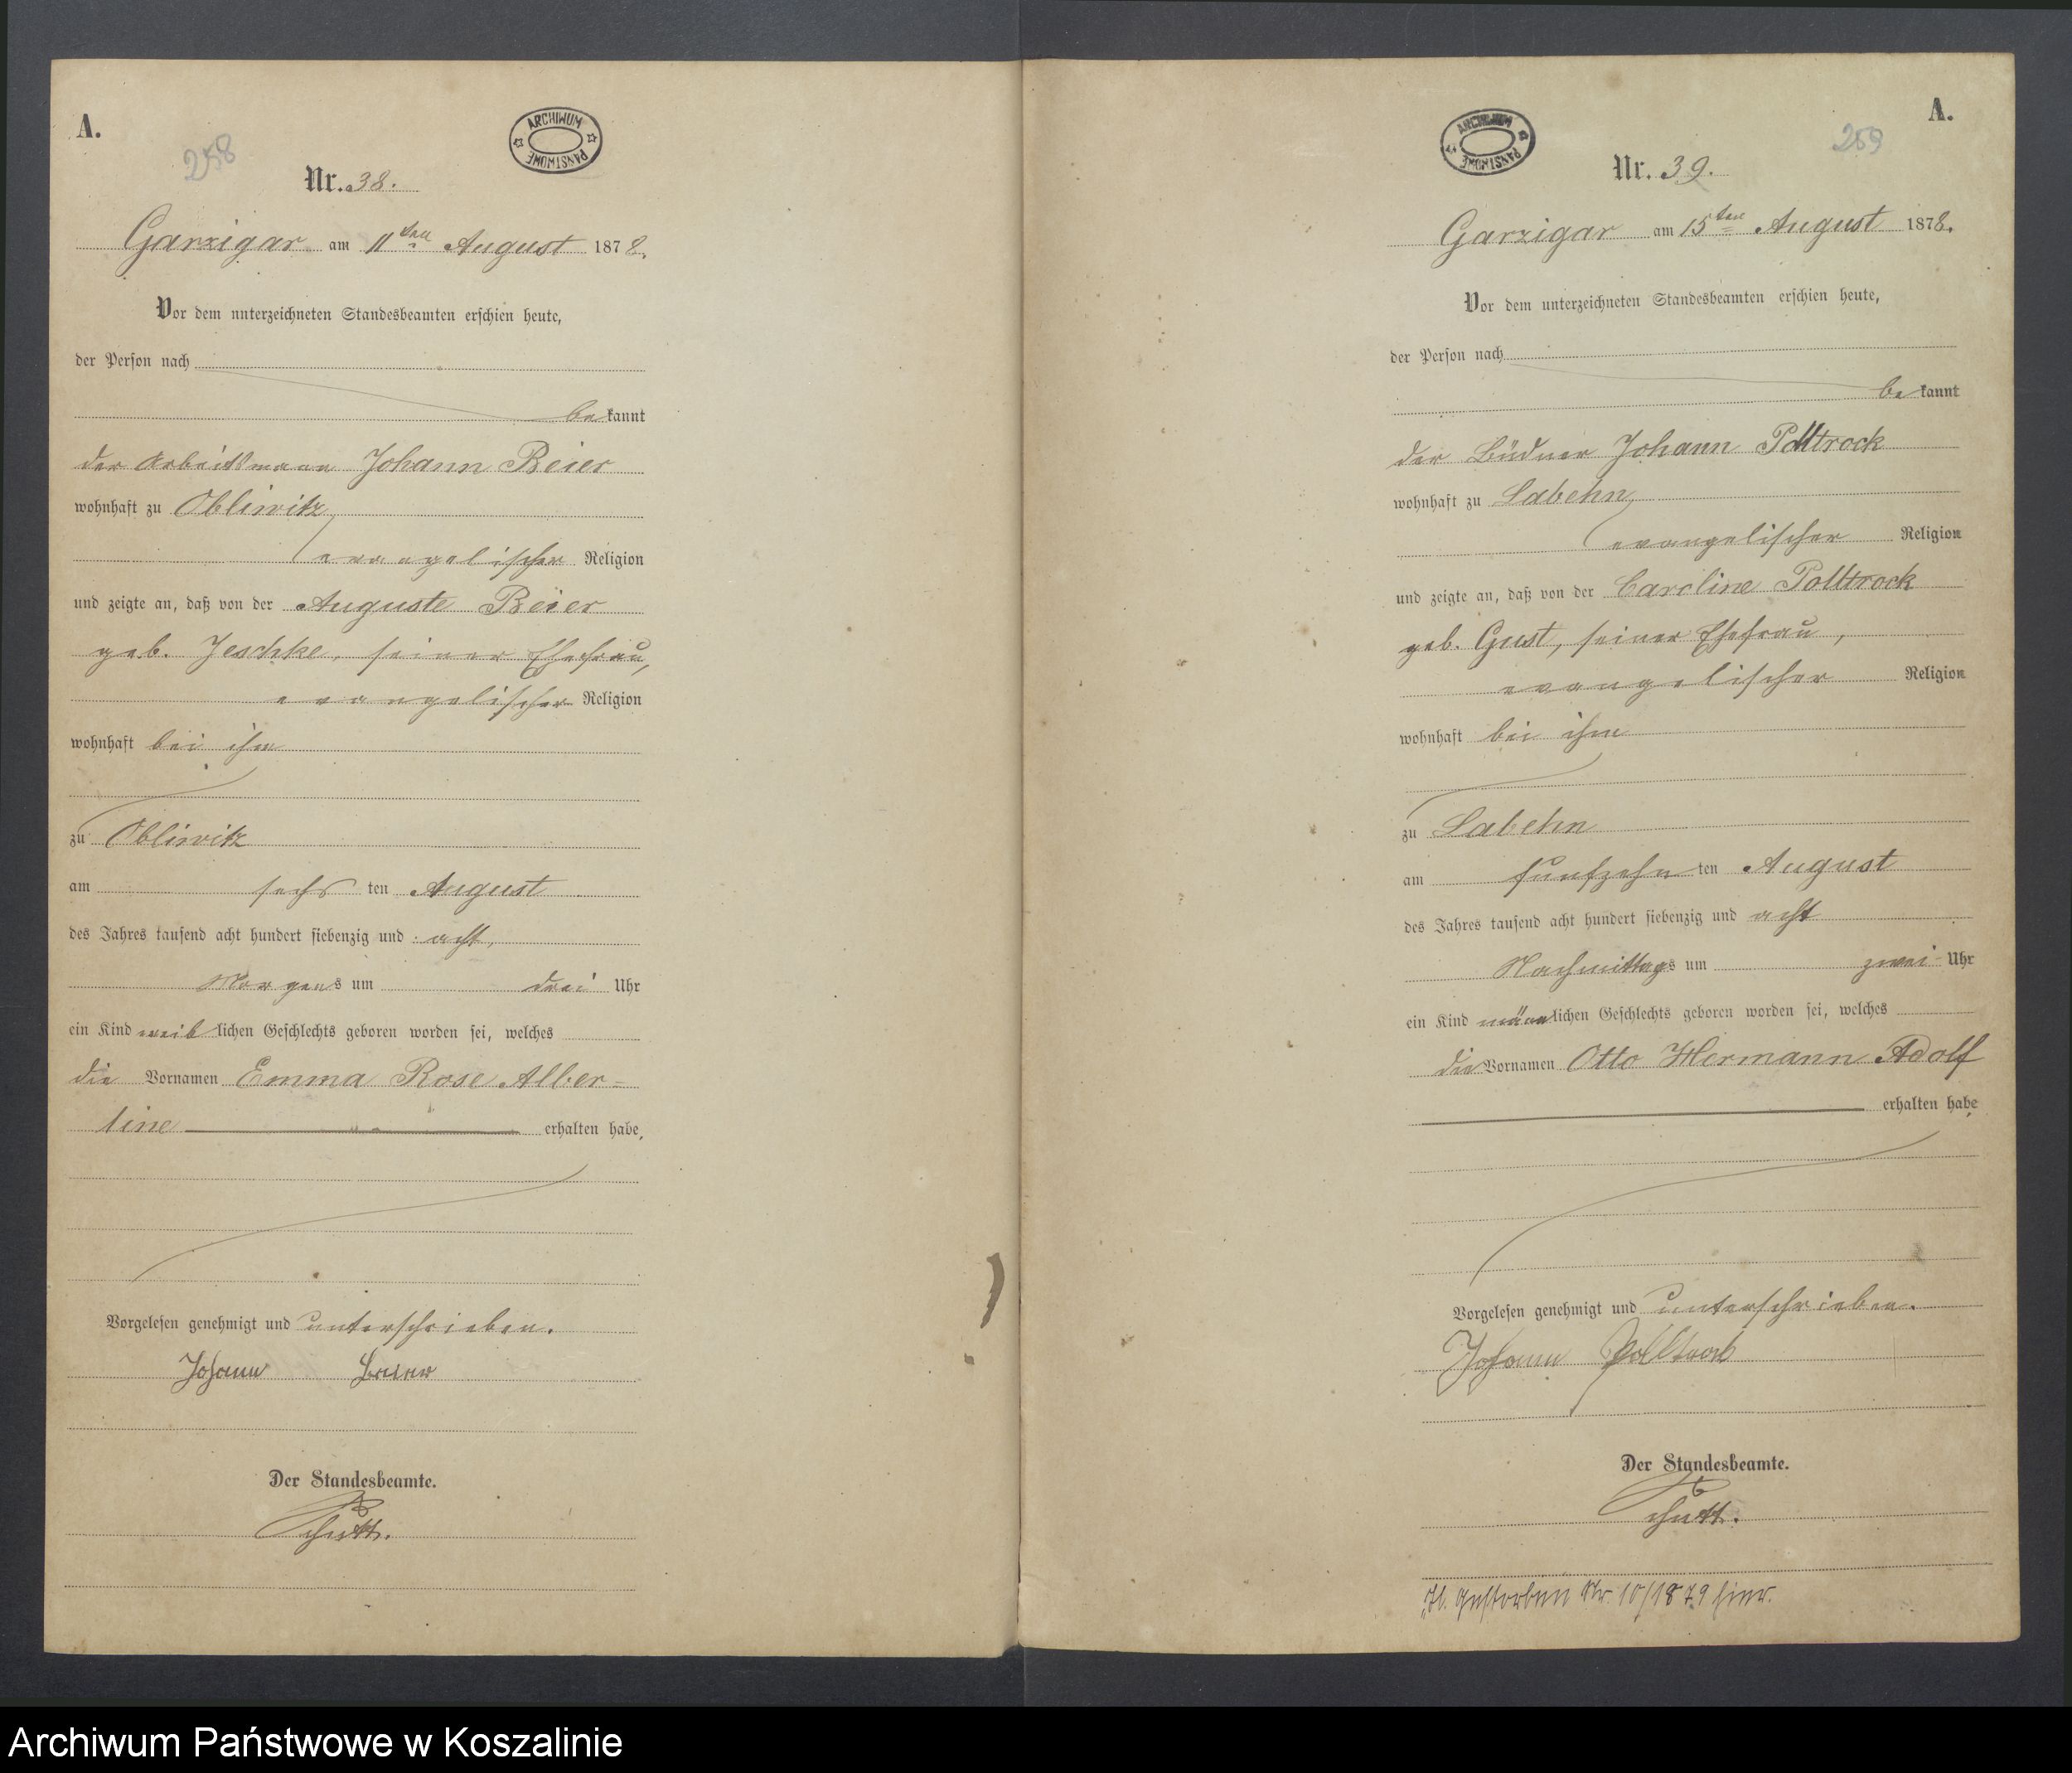 A.
258
ARCHIWUM
PAŃSTWOWE
Nr. 38.
Garzigar am 11ten August 1878.
Vor dem unterzeichneten Standesbeamten erschien heute,
der Person nach
bekannt
der Arbeitsmann Johann Beier
wohnhaft zu Obliwitz
evangelischer Religion
und zeigte an, daß von der Auguste Beier
geb. Jeschke, seiner Ehefrau,
evangelischer Religion
wohnhaft bei ihm
zu Obliwitz
am sechs ten August
des Jahres tausend acht hundert siebenzig und acht,
Morgens um drei Uhr
ein Kind weiblichen Geschlechts geboren worden sei, welches
die Vornamen Emma Rose Alber-
tine erhalten habe,
Vorgelesen genehmigt und unterschrieben.
Johann Beier
Der Standesbeamte.
Schütt.
A.
259
ARCHIWUM
PAŃSTWOWE
Nr. 39.
Garzigar am 15ten August 1878.
Vor dem unterzeichneten Standesbeamten erschien heute,
der Person nach
bekannt
der Büdner Johann Polltrock
wohnhaft zu Labehn
evangelischer Religion
und zeigte an, daß von der Caroline Polltrock
geb. Gust, seiner Ehefrau,
evangelischer Religion
wohnhaft bei ihm
zu Labehn
am funfzehn ten August
des Jahres tausend acht hundert siebenzig und acht
Nachmittags um zwei Uhr
ein Kind männlichen Geschlechts geboren worden sei, welches
die Vornamen Otto Hermann Adolf
erhalten habe
Vorgelesen genehmigt und unterschrieben.
Johann Polltrock
Der Standesbeamte.
Schütt.
gestorben Nr. 10/1879 hier.
Archiwum Państwowe w Koszalinie